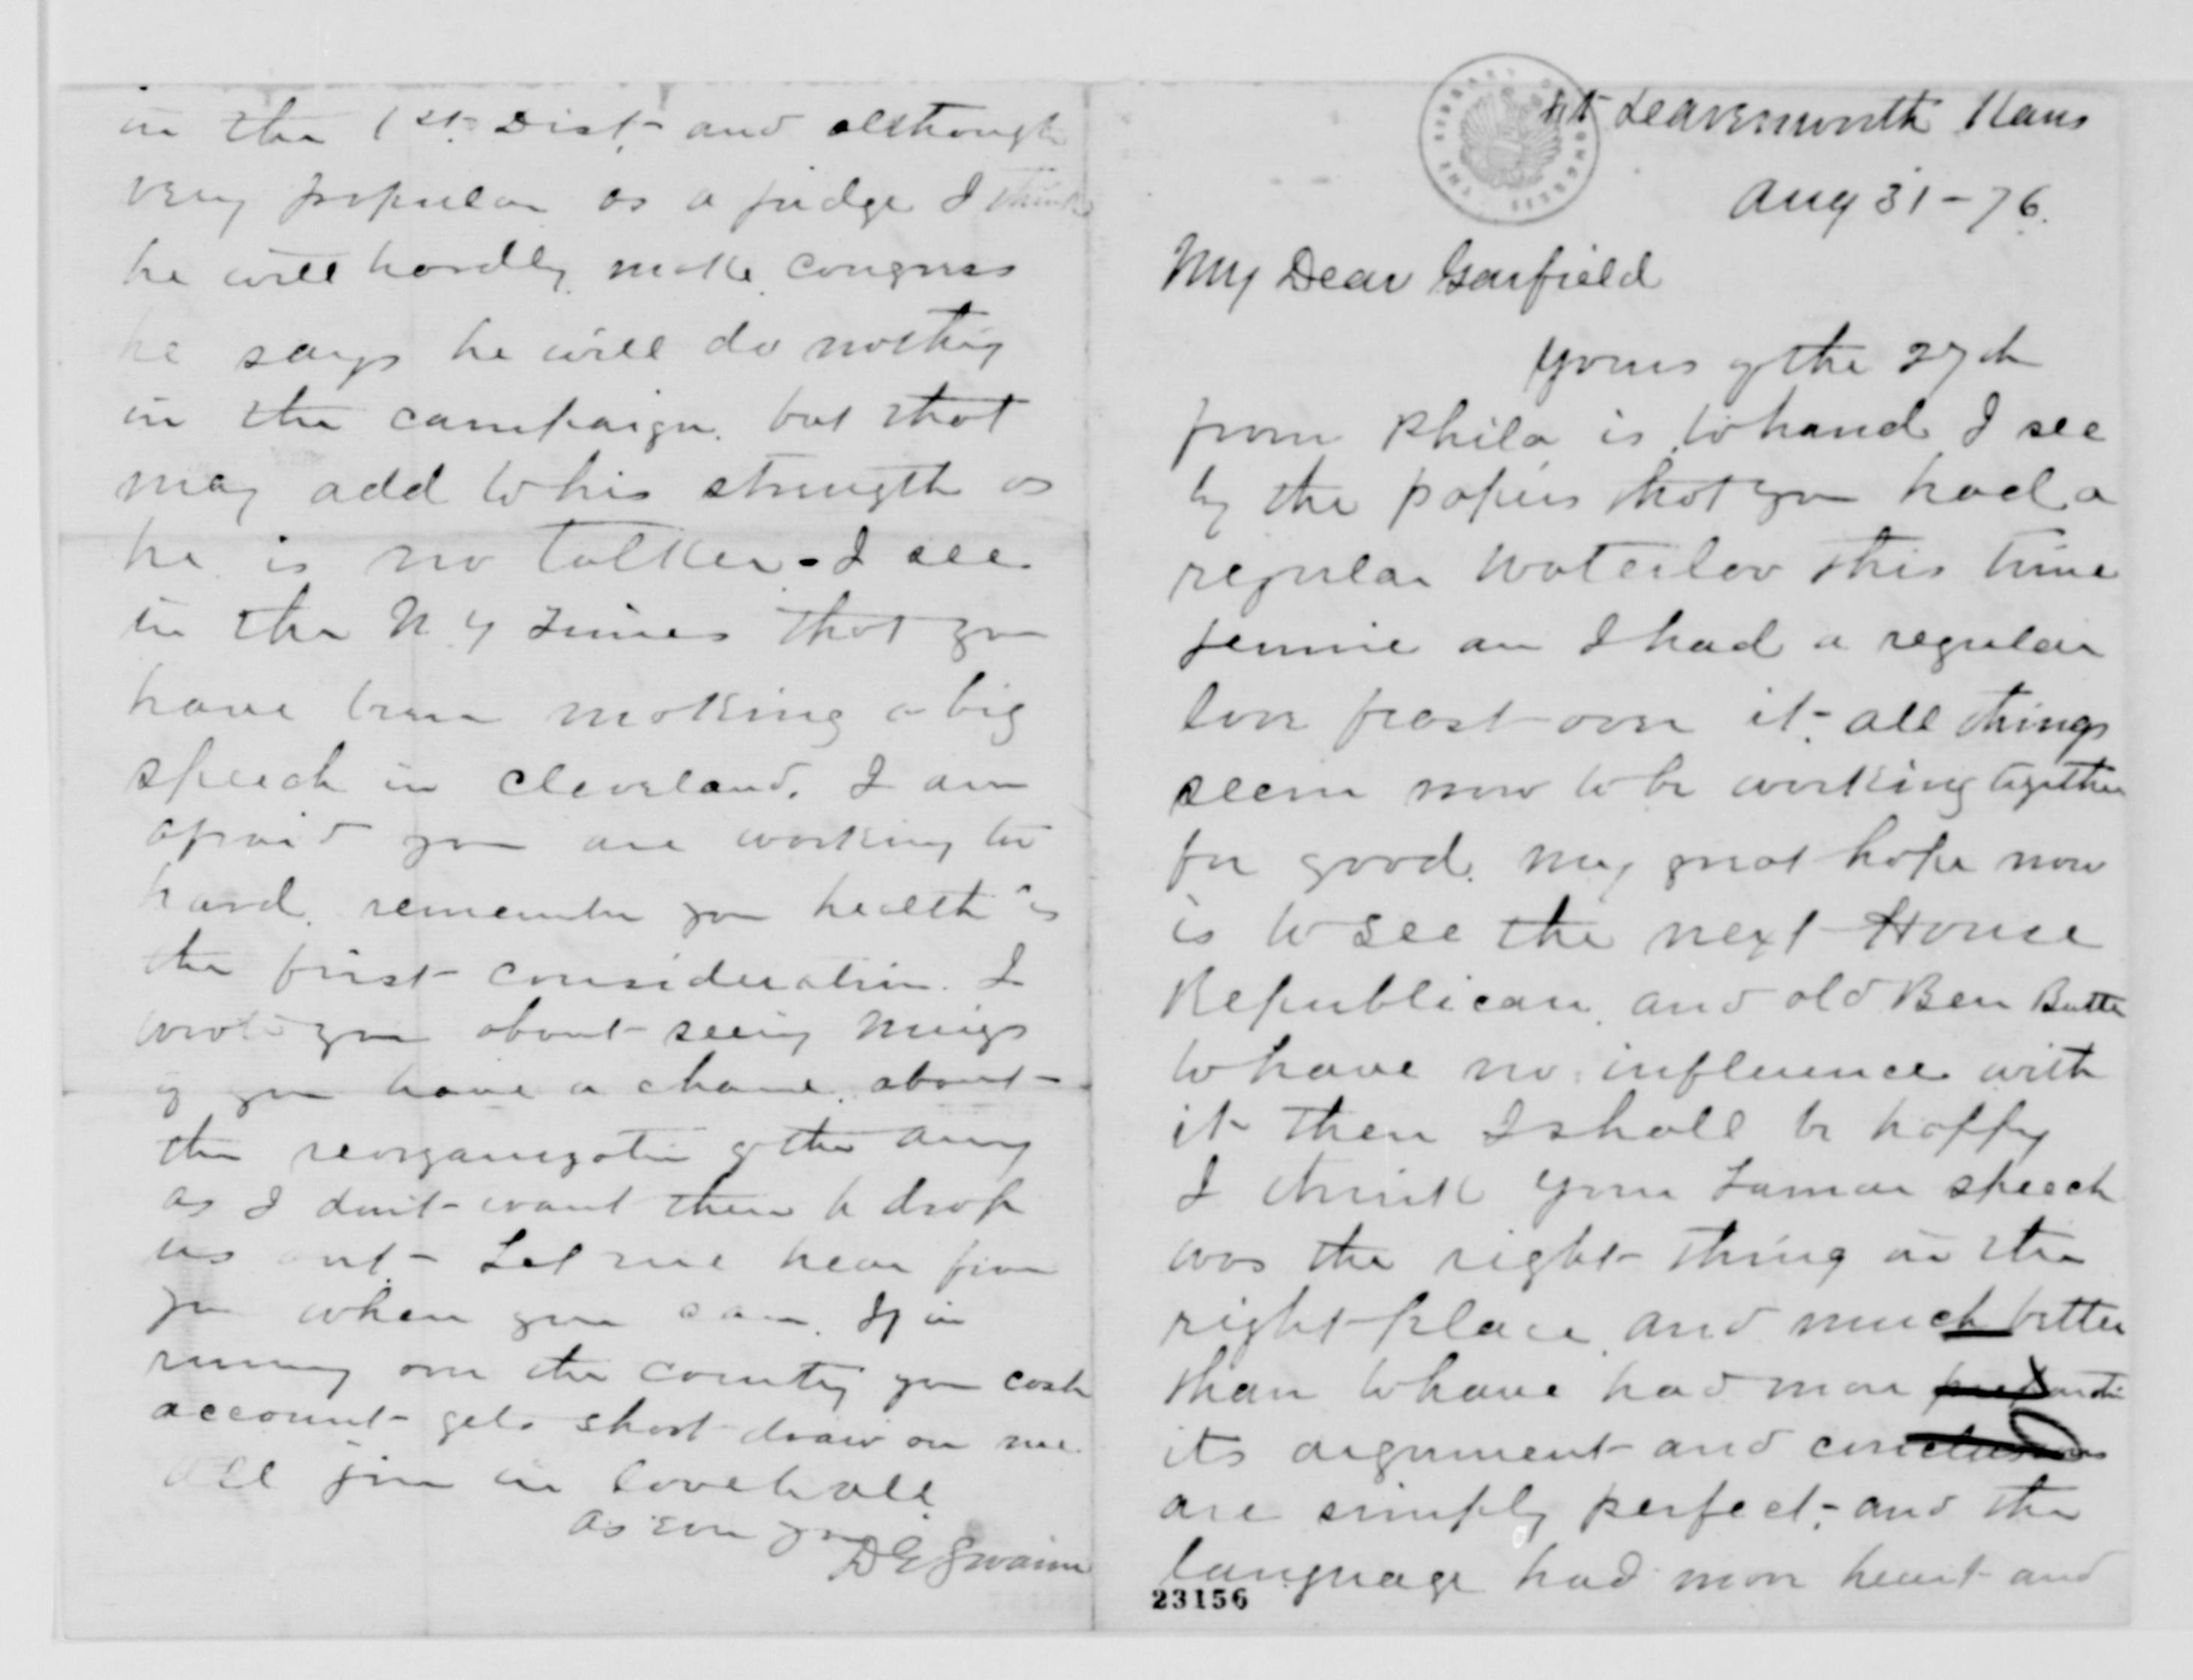 Ft Leavenworth Kans
Aug 31-76.
My Dear Garfield
Yours of the 27th
from Phila is to hand I see
by the papers that you had a
regular Waterloo this time
Jennie an I had a regular
love feast over it- all things
seem now to be working together
for good. my great hope now
is to see the next House
Republican. and old Ben Butler
to have no influence with
it then I shall be happy
I think your Lamar speech
was the right thing in the
right place and much better
than to have had more
its argument and conclusions
are simply perfect,- and the
language had more heart and
23156
in the 1st. Dist,- and although
very popular as a judge I think
he will hardly make congress
he says he will do nothing
in the campaign. but that
may add to his strength as
he is no talker - I see
in the N.Y Times that you
have been making a big
speech in Cleveland. I am
afraid you are working too
hard. remember you health is
the first consideration. I
wrote you about seeing Meigs
if you have a chance. about
the reorganization of the Army
as I don't want them to drop
us out - Let me hear from
you when you can. If in
running over the country you cash
account gets short draw on me.
All join in love to all
As ever yours
D G Swaim